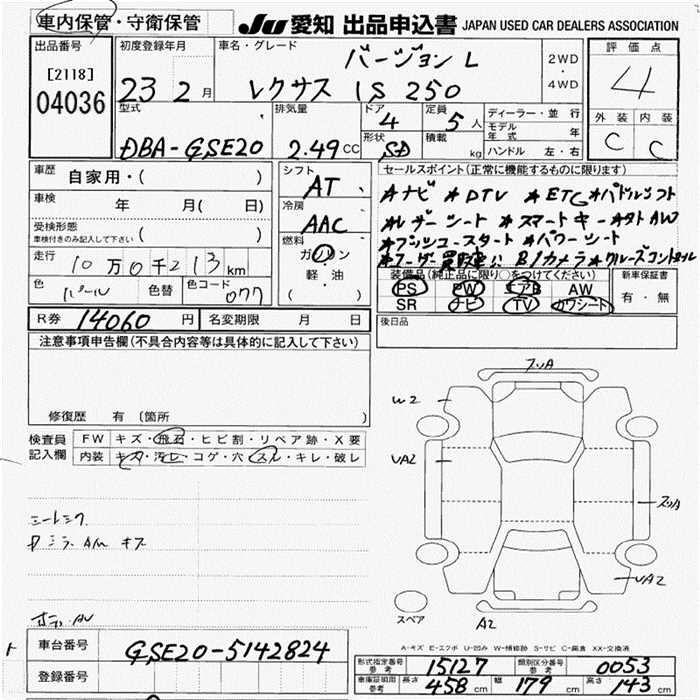 車内保管・守衛保管
JU 愛知 出品申込書 JAPAN USED CAR DEALERS ASSOCIATION
出品番号
[2118]
04036
初度登録年月
23 2月
車名・グレード
バージョン L
レクサス IS 250
2WD
・
4WD
評価点
4
外装 内装
C C
型式
DBA-GSE20
排気量
2.49 CC
ドア
4
形状
SD
定員
5人
積載
kg
ディーラー・並行
モデル年式 年
ハンドル 左・右
車歴 自家用・( )
車検 年 月( 日)
受検形態
車検付きのみ記入して下さい ( )
走行 10万0千213km
色 パール 色替 色コード 077
シフト
AT
冷房
AAC
燃料
ガソリン
・
軽・油
( )
セールスポイント(正常に機能するものに限ります)
*ナビ *DTV *ETC *パドルシフト
*レザーシート *スマートキー *タトAW
*プッシュスタート *パワーシート
*ユーザー買取車!! B/カメラ *クルーズコントロール
装備品(純正品に限り○をつけてください)
PS PW エアB AW
SR ナビ TV カワシート
新車保証書
有・無
R券 14060円 名変期限 月 日
後日品
注意事項申告欄(不具合内容等は具体的に記入して下さい)
修復歴 有〔箇所 〕
検査員記入欄
FW キズ・飛石・ヒビ割・リペア跡・X要
内装 キズ・汚レ・コゲ・穴・スレ・キレ・破レ
W2
UA2
UA2
A2
スペア
A-キズ E-エクボ U-凹み W-補修跡 S-サビ C-腐食 XX-交換済
車台番号 GSE20-5142824
登録番号
形式指定番号 参考 15127 類別区分番号 参考 0053
車庫証明用 参考 長さ 458cm 幅 179cm 高さ 143cm